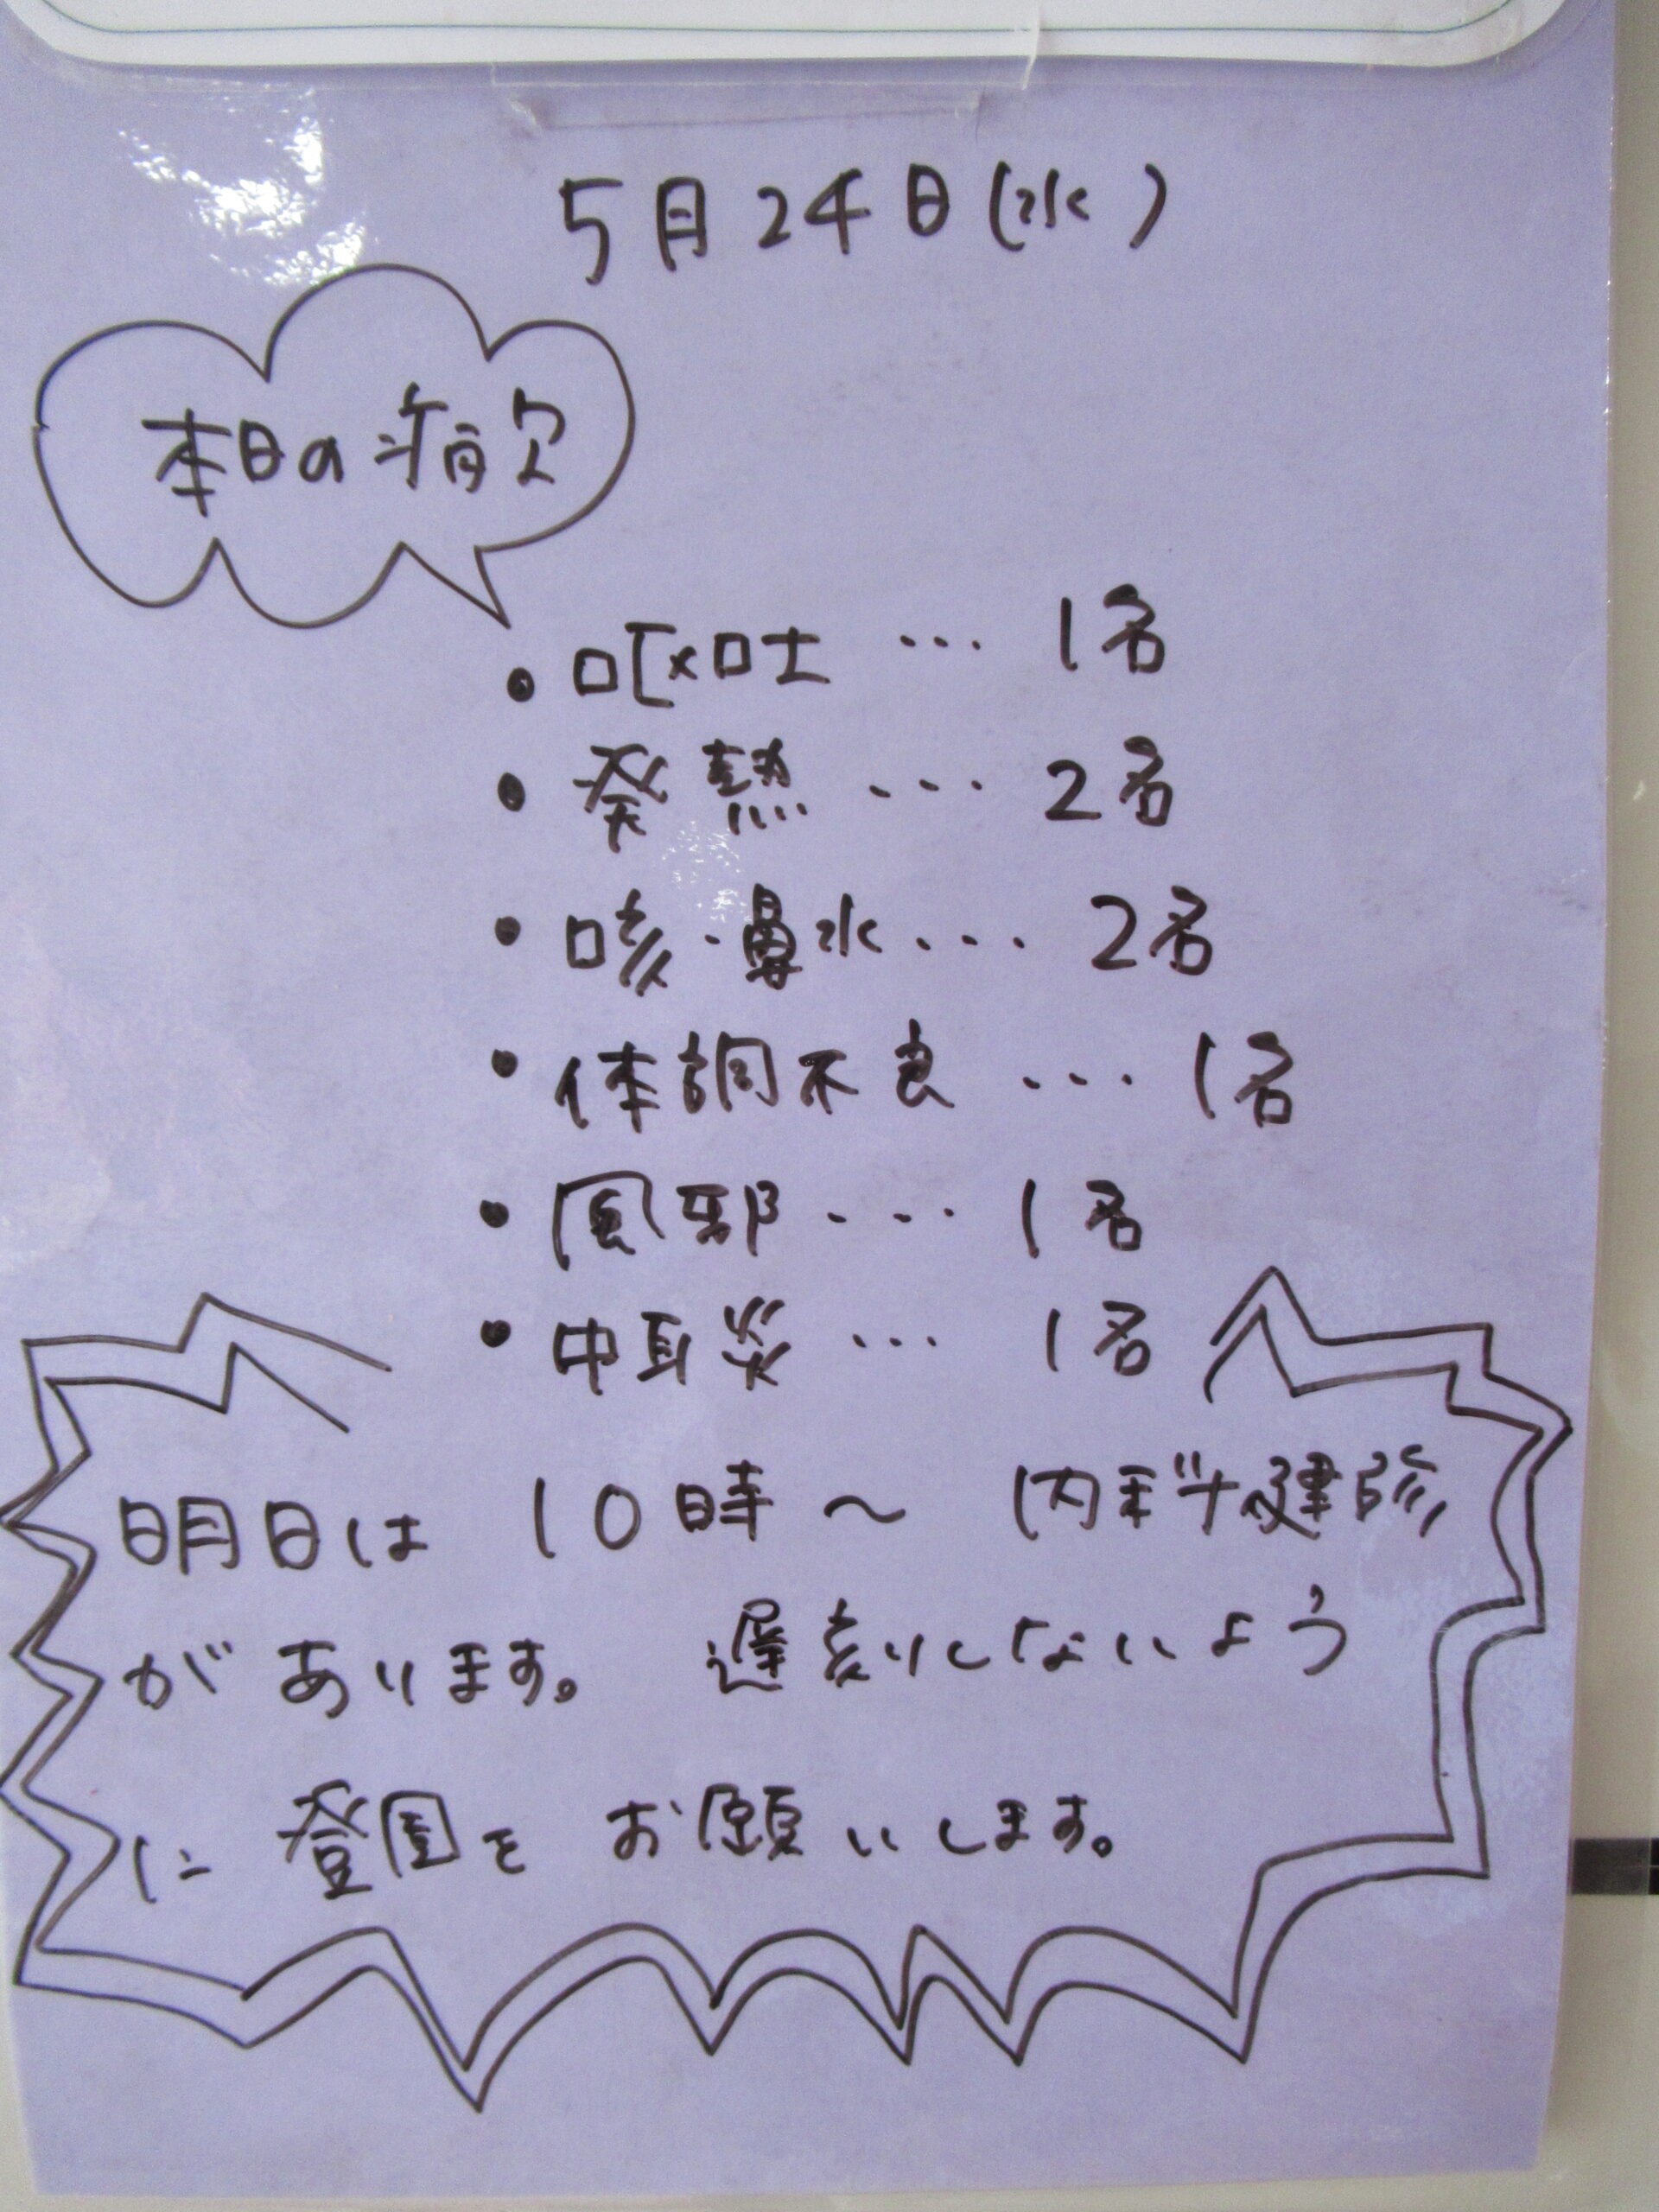 5月24日(水)
本日の病欠
・嘔吐 … 1名
・発熱 … 2名
・咳・鼻水 … 2名
・体調不良 … 1名
・風邪 … 1名
・中耳炎 … 1名
明日は 10時〜 内科健診
があります。 遅刻しないよう
に 登園を お願いします。